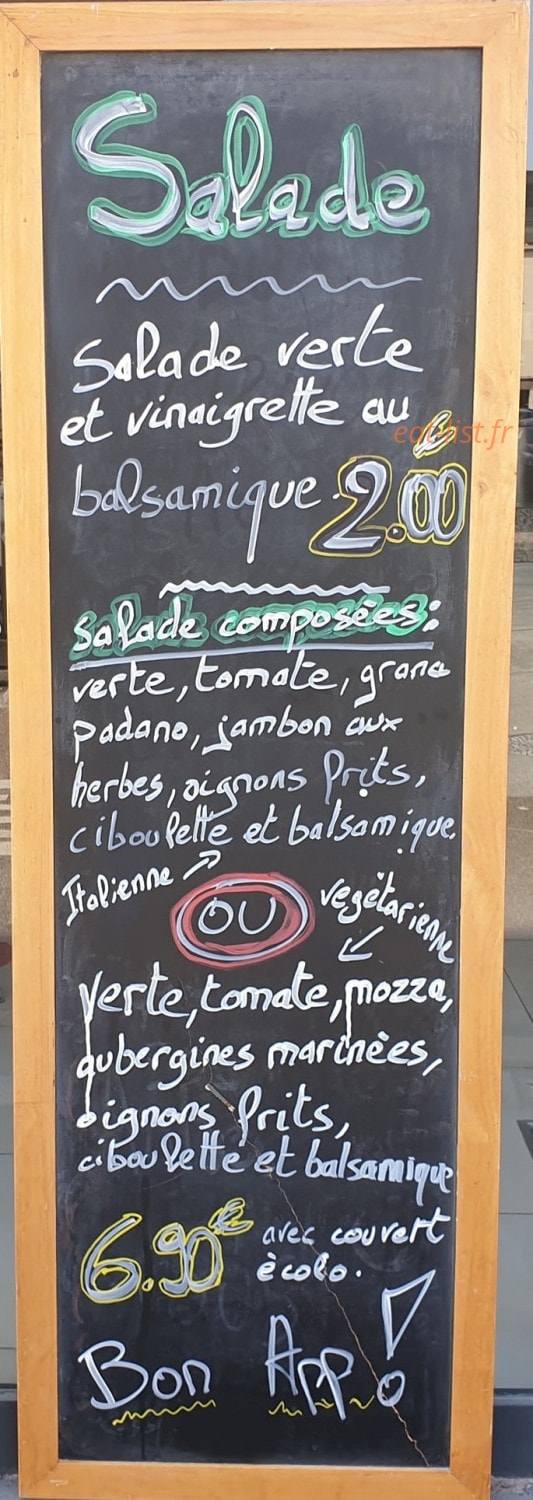 Salade
Salade verte
et vinaigrette au
eat-list.fr
balsamique. 2.00€
Salade composées:
verte, tomate, grana
padano, jambon aux
herbes, oignons frits,
ciboulette et balsamique.
Italienne
OU
vegétarienne
verte, tomate, mozza,
aubergines marinèes,
oignons frits,
ciboulette et balsamique
6.90€ avec couvert
ècolo.
Bon App!